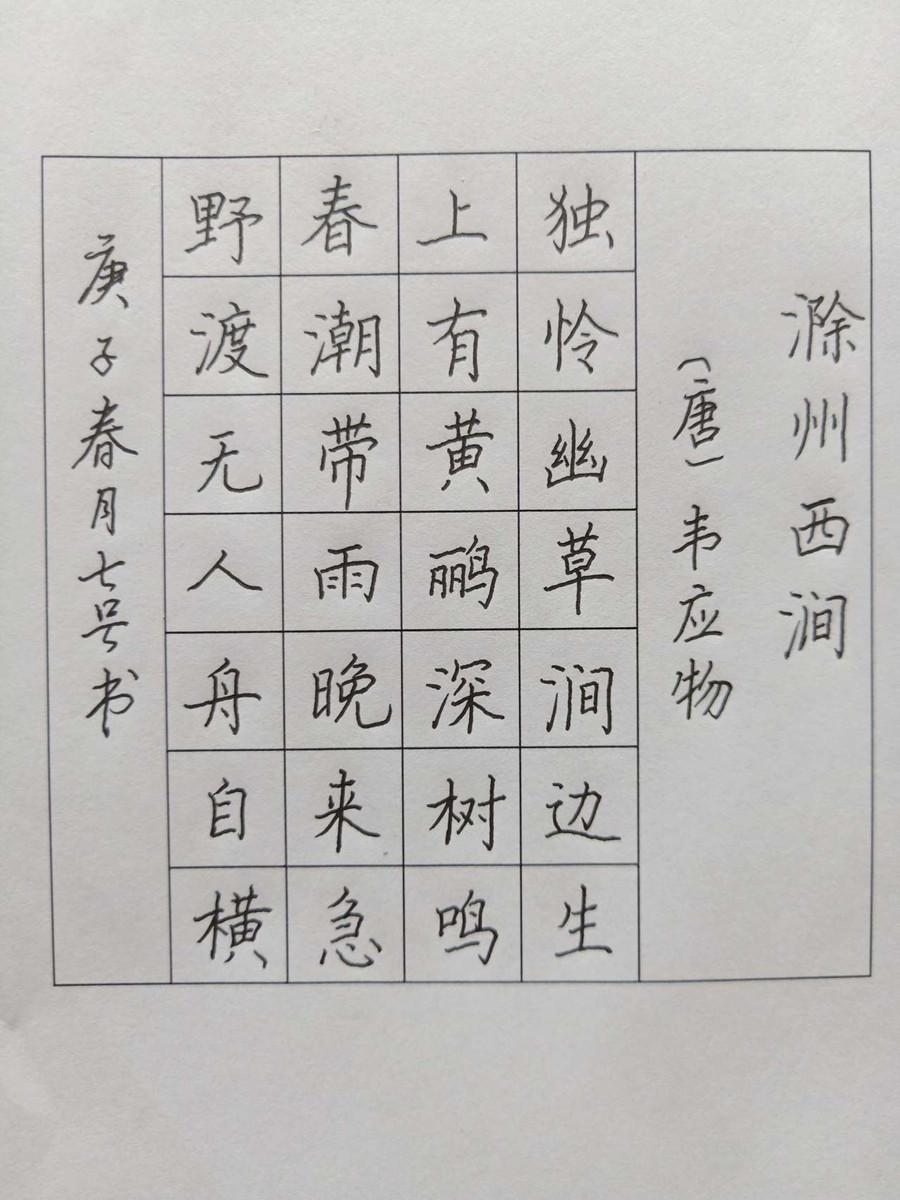 滁州西涧
（唐）韦应物
独怜幽草涧边生
上有黄鹂深树鸣
春潮带雨晚来急
野渡无人舟自横
庚子春月七号书